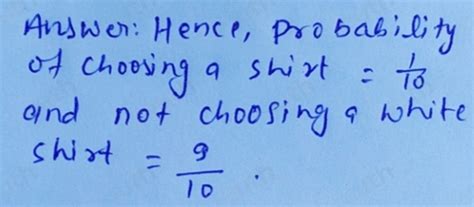 Answer: Hence, probability
of choosing a shirt = 1/10
and not choosing a white
shirt = 9/10.